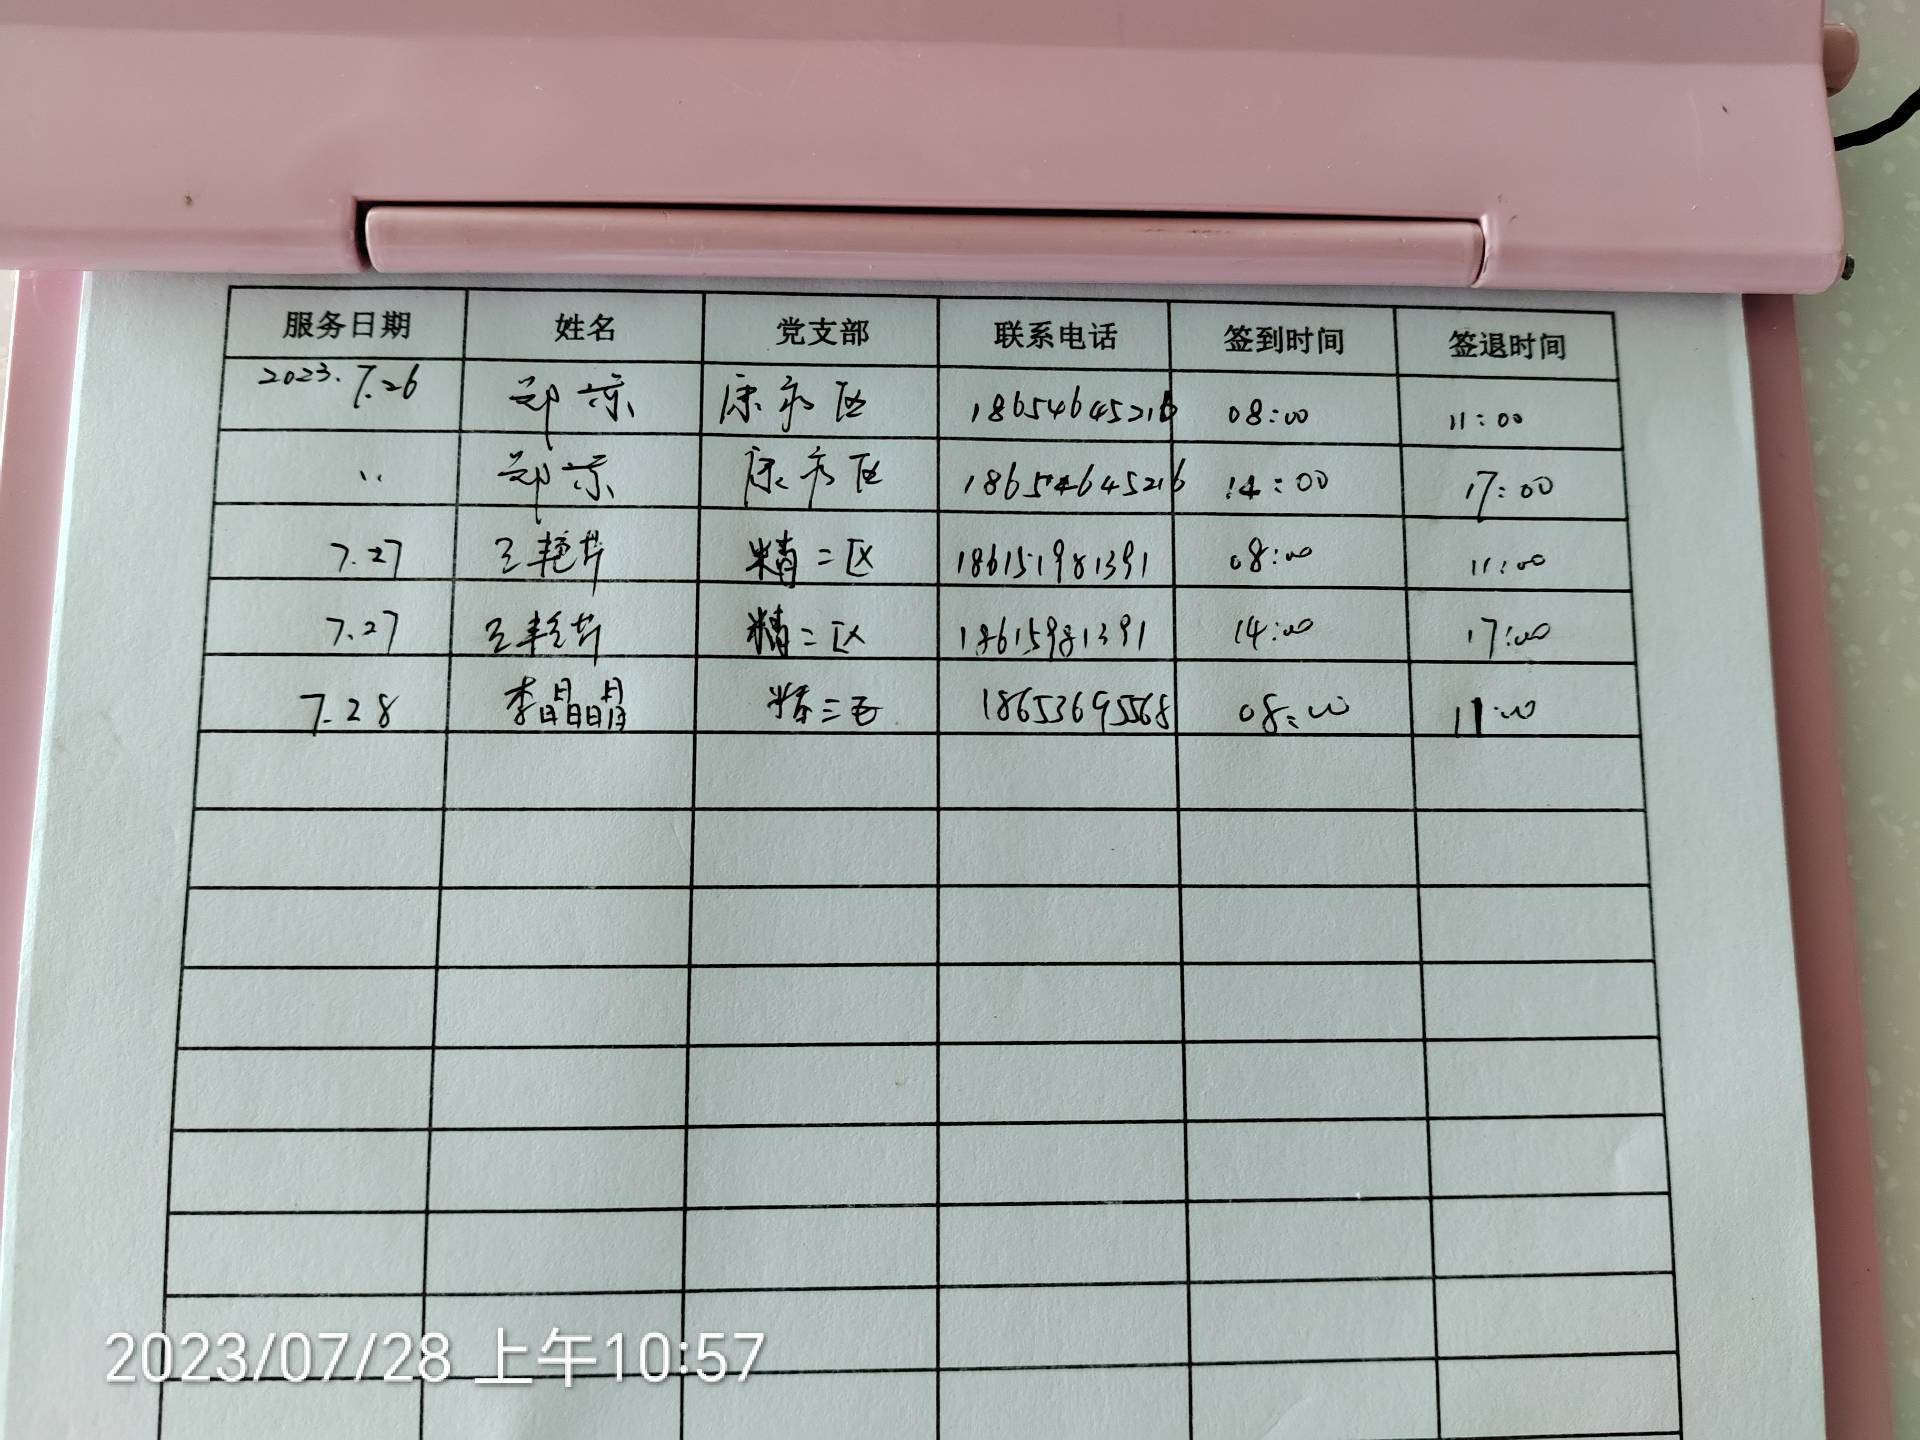 服务日期 姓名 党支部 联系电话 签到时间 签退时间
2023.7.26 郑京 康立区 18654645216 08:00 11:00
〃 郑京 区 18654645216 14:00 17:00
7.27 王艳芹 精二区 186151981391 08:00 11:00
7.27 王艳芹 精二区 18615981391 14:00 17:00
7.28 李晶晶 精三区 18653695568 08:00 11:00
2023/07/28 上午10:57